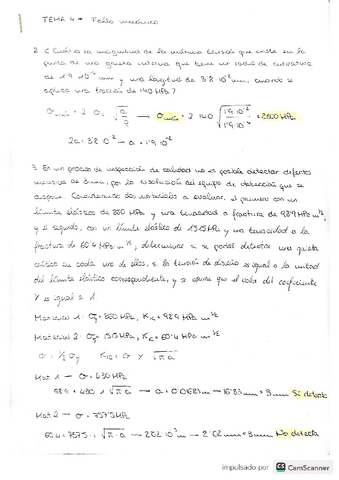 TEMA 4 → Fallo mecánico
2. ¿Cuál es la magnitud de la máxima tensión que existe en la
punta de una grieta interna que tiene un radio de curvatura
de 1'9·10⁻⁴ mm y una longitud de 3'8·10⁻² mm, cuando se
aplica una tracción de 140 MPa?
2a = 3'8·10⁻² → a = 1'9·10⁻²
3. En un proceso de inspección de calidad no es posible detectar defectos
menores de 3mm, por la resolución del equipo de detección que se
dispone. Considerando dos materiales a evaluar, el primero con un
límite elástico de 860 MPa y una tenacidad a fractura de 98'9 MPa m^1/2,
y el segundo, con un límite elástico de 1515 MPa y una tenacidad a la
fractura de 60'4 MPa m^1/2, determinar si se podrá detectar una grieta
crítica en cada uno de ellos, si la tensión de diseño es igual a la mitad
del límite elástico correspondiente, y se asume que el valor del coeficiente
Y es igual a 1.
Material 1: σy = 860 MPa, K_IC = 98'9 MPa m^1/2
Material 2: σy = 1515 MPa, K_IC = 60'4 MPa m^1/2
σ = 1/2 σy K_IC = σ Y √π a
Mat 1 → σ = 430 MPa
98'9 = 430·1 √π·a → a = 0'0168 m → 16'83 mm > 3mm Sí detecta
Mat 2 → σ = 757'5 MPa
60'4 = 757'5·1 √π·a → 2'02·10⁻³ m → 2'02 mm < 3mm No detecta
impulsado por CS CamScanner